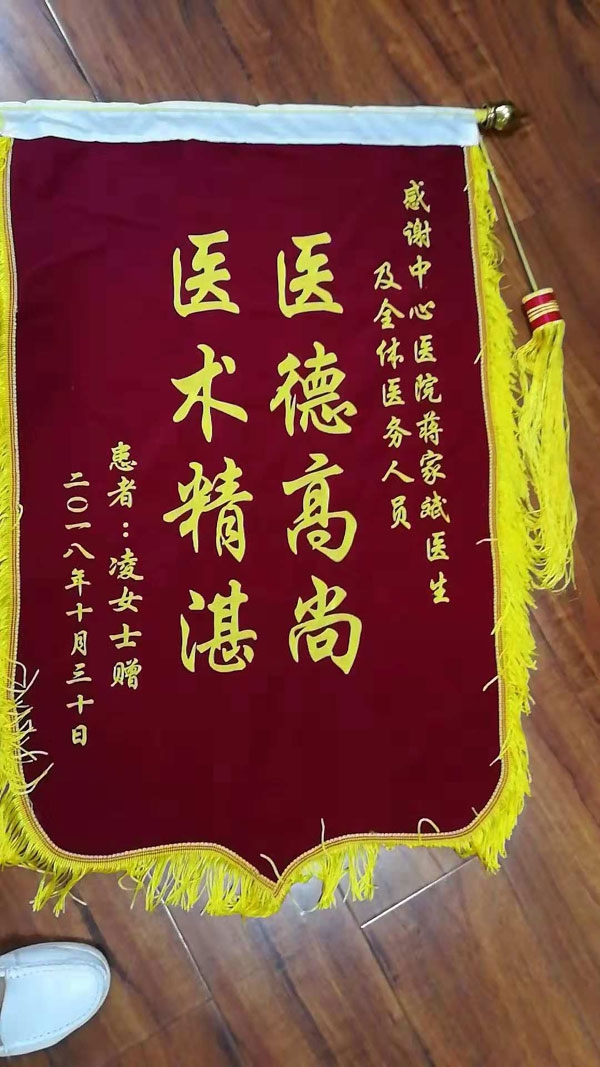 感谢中心医院蒋家斌医生
及全体医务人员
医德高尚
医术精湛
患者：凌女士赠
二〇一八年十月三十日